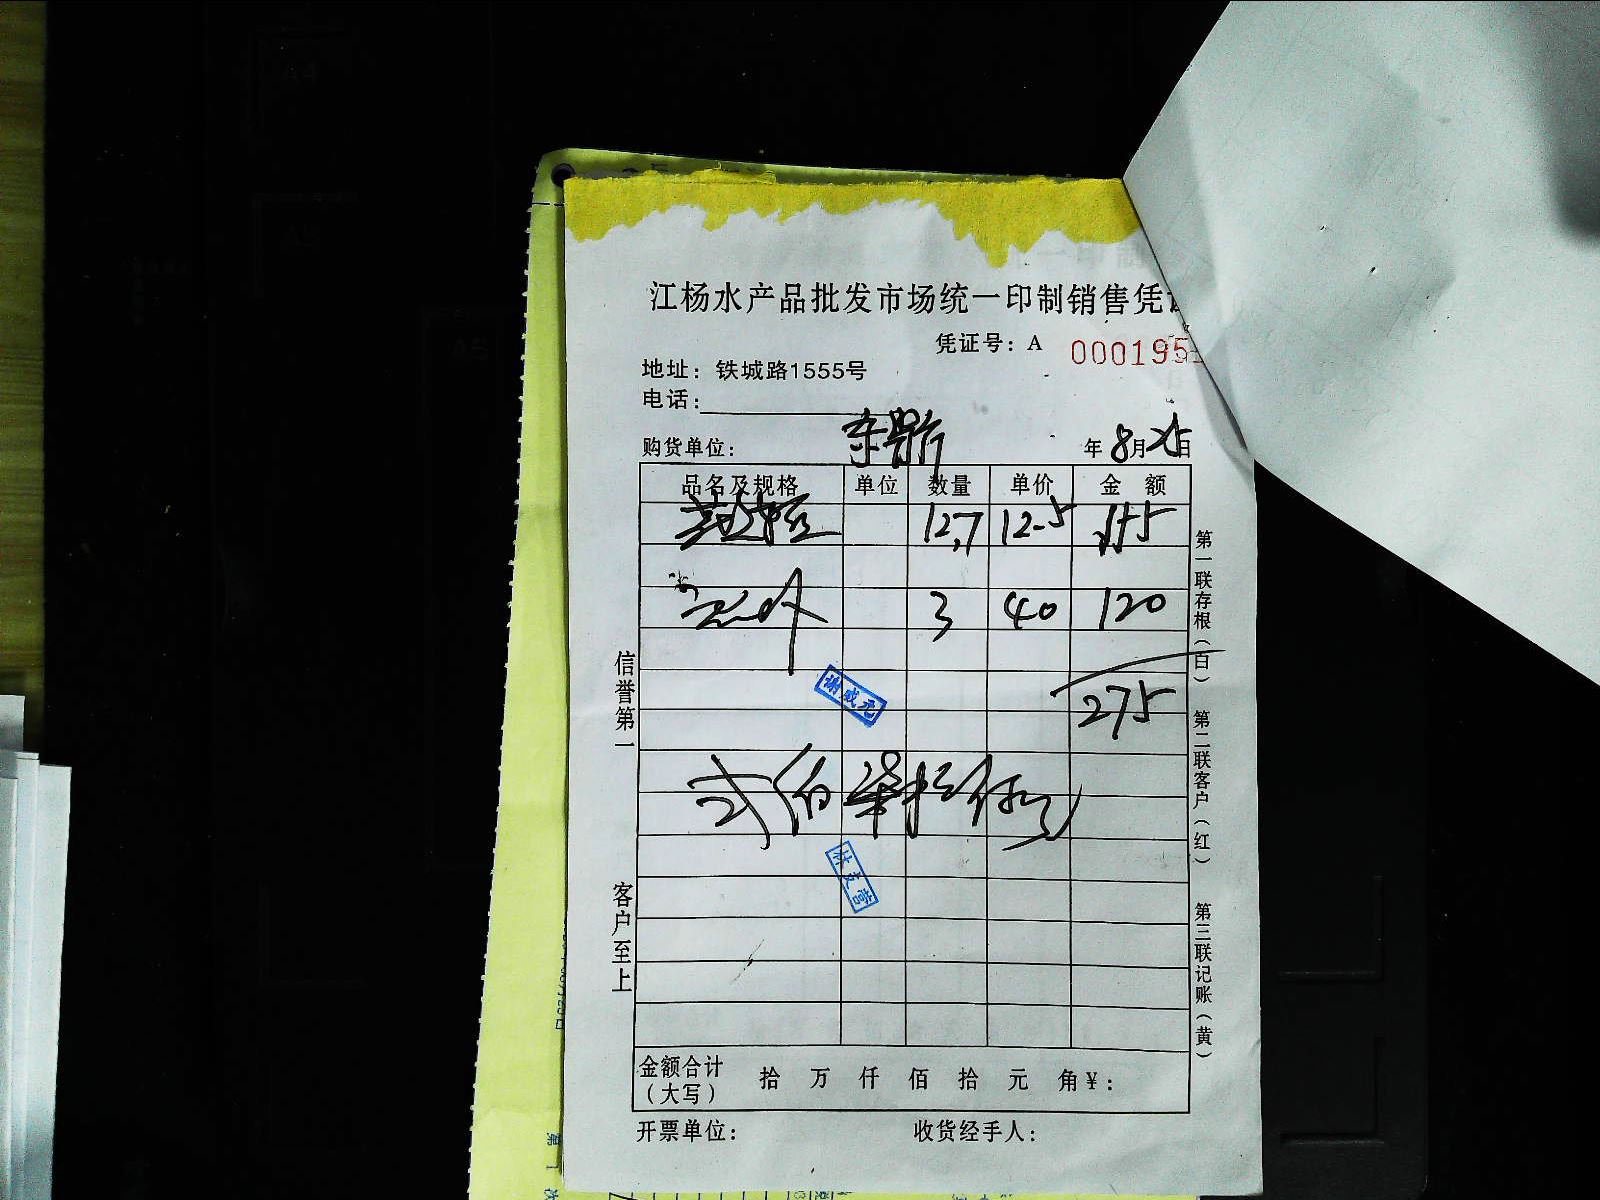 江杨水产品批发市场统一印制销售凭
凭证号：A 000195
地址：铁城路1555号
电话：
购货单位： 年 8月25日
品名及规格 单位 数量 单价 金额
12.7 12-5 155
3 40 120
275
谢成元
弍佰柒拾伍元
林支营
金额合计（大写） 拾 万 仟 佰 拾 元 角 ¥：
开票单位： 收货经手人：
信誉第一
客户至上
第一联存根（白） 第二联客户（红） 第三联记账（黄）
A4
A5